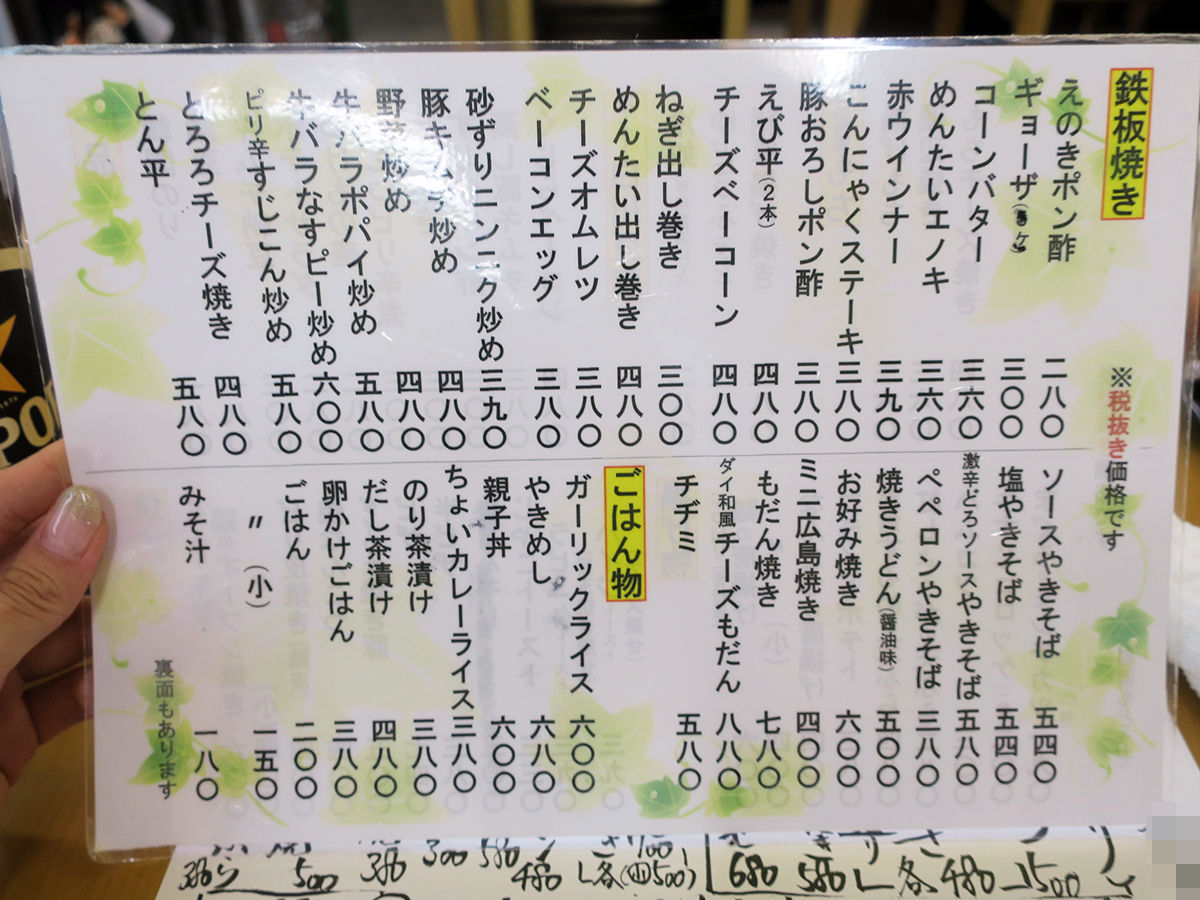 鉄板焼き
※税抜き価格です
えのきポン酢 二八〇
ギョーザ 三〇〇
コーンバター 三六〇
めんたいエノキ 三六〇
赤ウインナー 三九〇
こんにゃくステーキ 三八〇
豚おろしポン酢 三八〇
えび平(2本) 四八〇
チーズベーコーン 四八〇
ねぎ出し巻き 三〇〇
めんたい出し巻き 四八〇
チーズオムレツ 三八〇
ベーコンエッグ 三八〇
砂ずりニンニク炒め 三九〇
豚キムチ炒め 四八〇
野菜炒め 四八〇
牛バラポパイ炒め 五八〇
牛バラなすピー炒め 六〇〇
ピリ辛すじこん炒め 五八〇
とろろチーズ焼き 四八〇
とん平 五八〇
ソースやきそば 五四〇
塩やきそば 五四〇
激辛どろソースやきそば 五八〇
ペペロンやきそば 三八〇
焼きうどん(醤油味) 五〇〇
お好み焼き 六〇〇
ミニ広島焼き 四〇〇
もだん焼き 七八〇
ダイ和風チーズもだん 八八〇
チヂミ 五八〇
ごはん物
ガーリックライス 六〇〇
やきめし 六八〇
親子丼 六〇〇
ちょいカレーライス 三八〇
のり茶漬け 三八〇
だし茶漬け 四八〇
卵かけごはん 三八〇
ごはん 二〇〇
〃(小) 一五〇
みそ汁 一八〇
裏面もあります
380 500 380 300 580 480 各 680 580 各480 1500